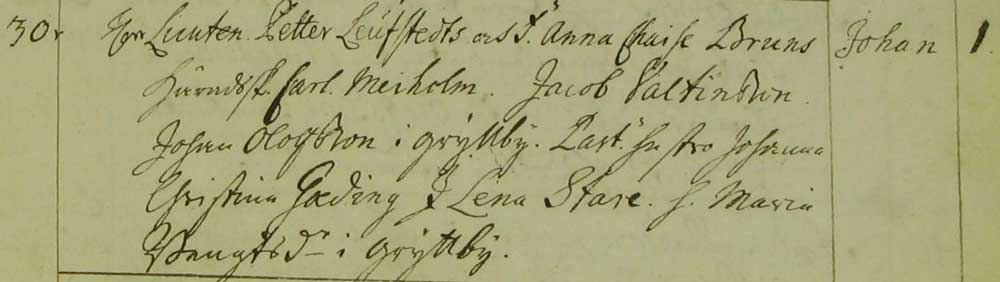 30. Hr Lieuten. Petter Leüfstedts och F. Anna Chaise Bruns Johan 1.
Häradssk. Carl. Meiholm. Jacob Valtinsson.
Johan Olofsson i gryttby. Past. hustro Johanna
Christina Gæding J Lena Stare. h. Maria
Bengtsd i gryttby.